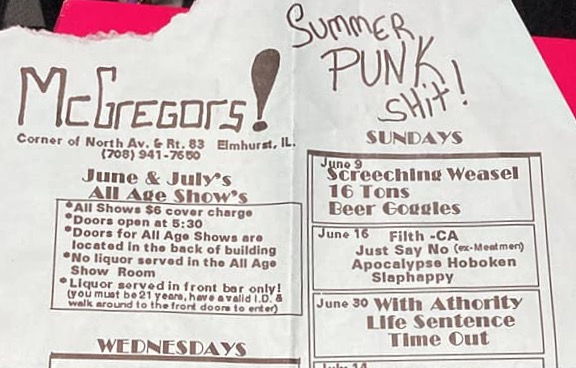 McGregors!
Corner of North Av. & Rt. 83 Elmhurst, IL.
(708) 941-7650
June & July's
All Age Show's
*All Shows $6 cover charge
*Doors open at 5:30
*Doors for All Age Shows are
located in the back of building
*No liquor served in the All Age
Show Room
*Liquor served in front bar only!
(you must be 21 years, have a valid I.D. &
walk around to the front doors to enter)
WEDNESDAYS
SUMMER
PUNK
SHiT!
SUNDAYS
June 9
Screeching Weasel
16 Tons
Beer Goggles
June 16 Filth -CA
Just Say No (ex-Meatmen)
Apocalypse Hoboken
Slaphappy
June 30 With Athority
Life Sentence
Time Out
July 14